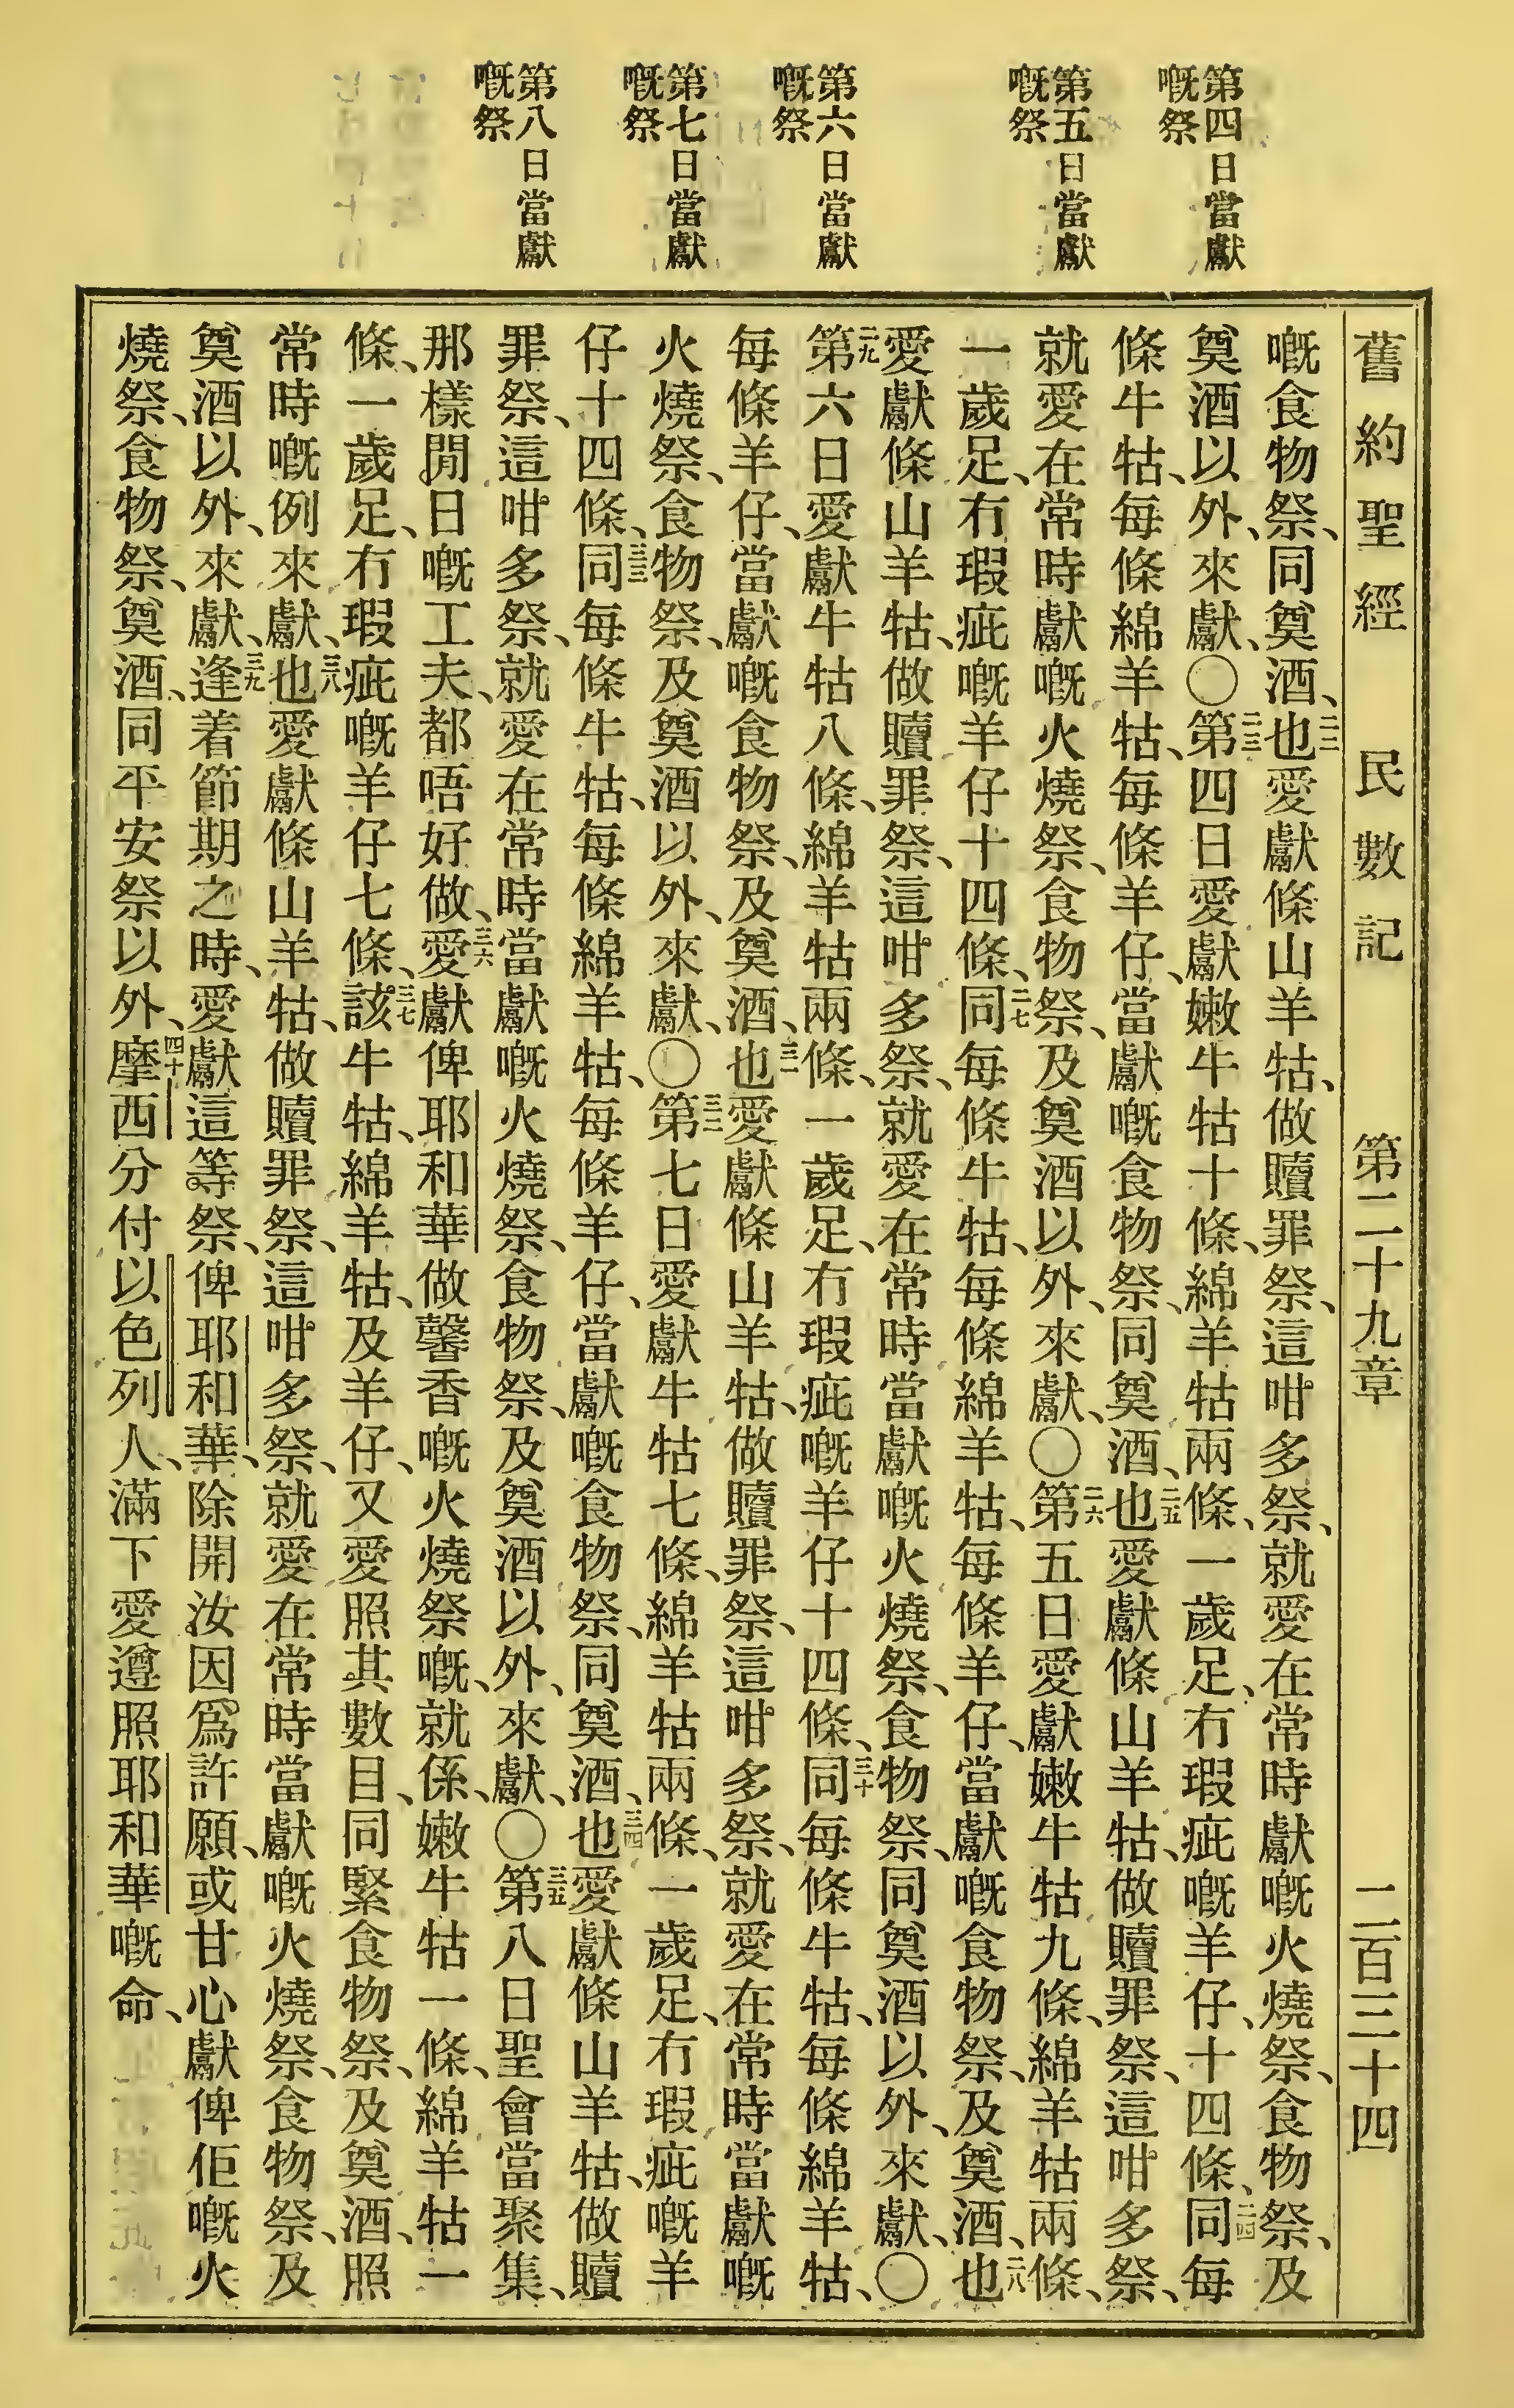 第四日當獻
嘅祭
第五日當獻
嘅祭
第六日當獻
嘅祭
第七日當獻
嘅祭
第八日當獻
嘅祭
舊約聖經 民數記 第二十九章 二百三十四
嘅食物祭、同奠酒、二二也愛獻條山羊牯、做贖罪祭、這咁多祭、就愛在常時獻嘅火燒祭、食物祭、及
奠酒以外、來獻、〇二三第四日愛獻嫩牛牯十條、綿羊牯兩條、一歲足、冇瑕疵嘅羊仔、十四條、二四同每
條牛牯、每條綿羊牯、每條羊仔、當獻嘅食物祭、同奠酒、二五也愛獻條山羊牯、做贖罪祭、這咁多祭、
就愛在常時獻嘅火燒祭、食物祭、及奠酒以外、來獻、〇二六第五日愛獻嫩牛牯九條、綿羊牯兩條、
一歲足、冇瑕疵嘅羊仔十四條、二七同每條牛牯、每條綿羊牯、每條羊仔、當獻嘅食物祭、及奠酒、二八也
愛獻條山羊牯、做贖罪祭、這咁多祭、就愛在常時當獻嘅火燒祭、食物祭、同奠酒以外、來獻、〇
二九第六日愛獻牛牯八條、綿羊牯兩條、一歲足、冇瑕疵嘅羊仔十四條、三十同每條牛牯、每條綿羊牯、
每條羊仔、當獻嘅食物祭、及奠酒、三一也愛獻條山羊牯、做贖罪祭、這咁多祭、就愛在常時當獻嘅
火燒祭、食物祭、及奠酒以外、來獻、〇三二第七日愛獻牛牯七條、綿羊牯兩條、一歲足、冇瑕疵嘅羊
仔十四條、三三同每條牛牯、每條綿羊牯、每條羊仔、當獻嘅食物祭、同奠酒、三四也愛獻條山羊牯、做贖
罪祭、這咁多祭、就愛在常時當獻嘅火燒祭、食物祭、及奠酒以外、來獻、〇三五第八日聖會當聚集、
那樣閒日嘅工夫、都唔好做、三六愛獻俾耶和華做馨香嘅火燒祭嘅、就係、嫩牛牯一條、綿羊牯一
條、一歲足、冇瑕疵嘅羊仔七條、三七該牛牯、綿羊牯、及羊仔、又愛照其數目、同緊食物祭、及奠酒、照
常時嘅例來獻、三八也愛獻條山羊牯、做贖罪祭、這咁多祭、就愛在常時當獻嘅火燒祭、食物祭、及
奠酒以外、來獻、三九逢着節期之時、愛獻這等祭、俾耶和華、除開汝因爲許願、或甘心獻俾佢嘅火
燒祭、食物祭、奠酒、同平安祭以外、四十摩西分付以色列人、滿下愛遵照耶和華嘅命、